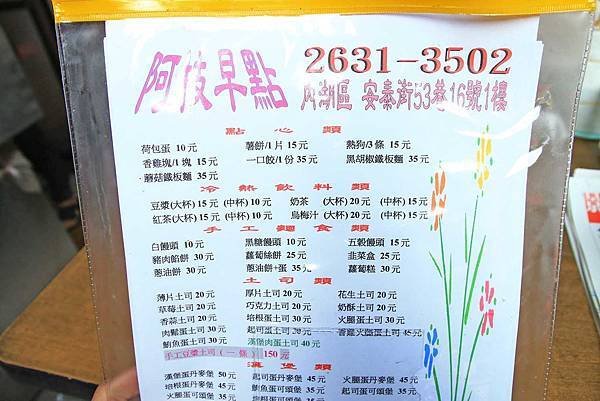 阿俊早點 2631-3502
內湖區 安泰街53巷16號1樓
點心類
荷包蛋 10元 薯餅/1片 15元 熱狗/3條 15元
香雞塊/1塊 15元 一口餃/1份 35元 黑胡椒鐵板麵 35元
蘑菇鐵板麵 35元
冷熱飲料類
豆漿(大杯) 15元 (中杯) 10元 奶茶 (大杯) 20元 (中杯) 15元
紅茶(大杯) 15元 (中杯) 10元 烏梅汁 (大杯) 20元 (中杯) 15元
手工麵食類
白饅頭 10元 黑糖饅頭 10元 五穀饅頭 15元
豬肉餡餅 30元 蘿蔔絲餅 25元 韭菜盒 25元
蔥油餅 30元 蔥油餅+蛋 35元 蘿蔔糕 30元
土司類
薄片土司 20元 厚片土司 20元 花生土司 20元
草莓土司 20元 巧克力土司 20元 奶酥土司 20元
香蒜土司 20元 培根蛋土司 30元 火腿蛋土司 30元
肉鬆蛋土司 30元 起司蛋土司 30元 香雞火腿蛋土司 45元
鮪魚蛋土司 30元 漢堡肉蛋土司 40元
手工豆漿土司 (一條) 150元
漢堡類
漢堡蛋丹麥堡 50元 起司蛋丹麥堡 45元 火腿蛋丹麥堡 45元
培根蛋丹麥堡 45元 鮪魚蛋丹麥堡 45元
火腿蛋可頌堡 35元 起司蛋可頌堡 35元